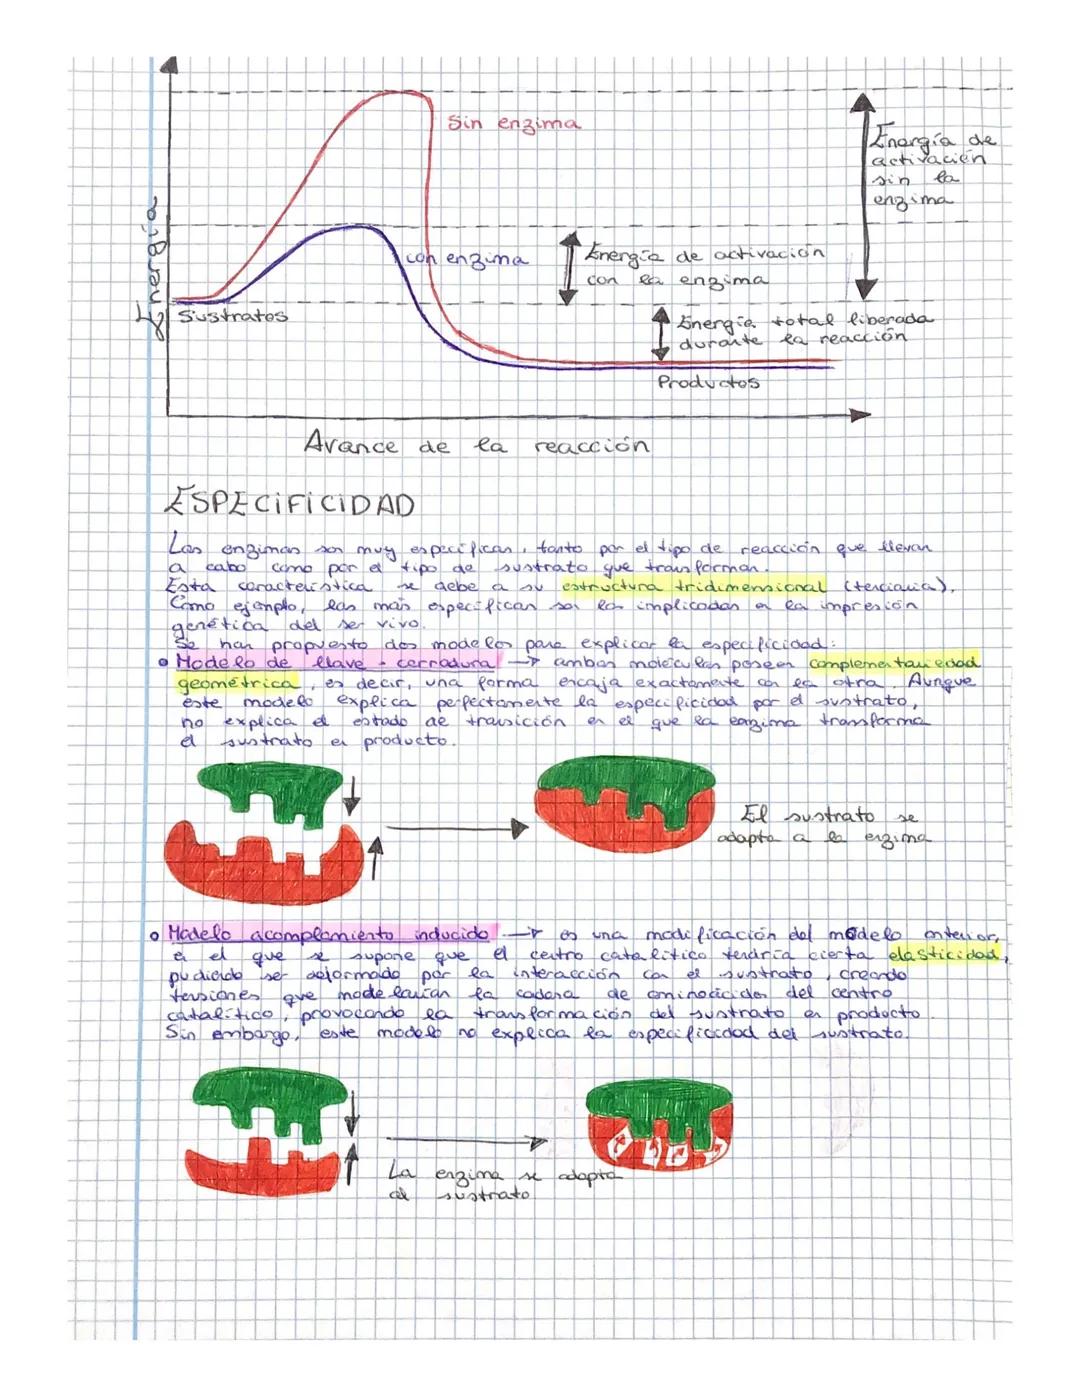 Sin enzima
Energía de
activación
sin la
enzima
Energía
con enzima
Energía de activación
con la enzima
Sustratos
Energía total liberada
durante la reacción
Productos
Avance de la reacción
ESPECIFICIDAD
Las enzimas son muy específicas, tanto por el tipo de reacción que llevan
a cabo como por el tipo de sustrato que transforman.
Esta característica se debe a su estructura tridimensional (terciaria).
Como ejemplo, las más específicas son las implicadas en la impresión
genética del ser vivo.
Se han propuesto dos modelos para explicar la especificidad:
Modelo de llave - cerradura → ambas moléculas poseen complementariedad
geométrica, es decir, una forma encaja exactamente con la otra. Aunque
este modelo explica perfectamente la especificidad por el sustrato,
no explica el estado de transición en el que la enzima transforma
el sustrato en producto.
El sustrato se
adapta a la enzima
Modelo acoplamiento inducido → es una modificación del modelo anterior,
en el que se supone que el centro catalítico tendría cierta elasticidad,
pudiendo ser deformado por la interacción con el sustrato, creando
tensiones que modelarían la cadena de aminoácidos del centro
catalítico, provocando la transformación del sustrato en producto.
Sin embargo, este modelo no explica la especificidad del sustrato.
La enzima se adapta
al sustrato